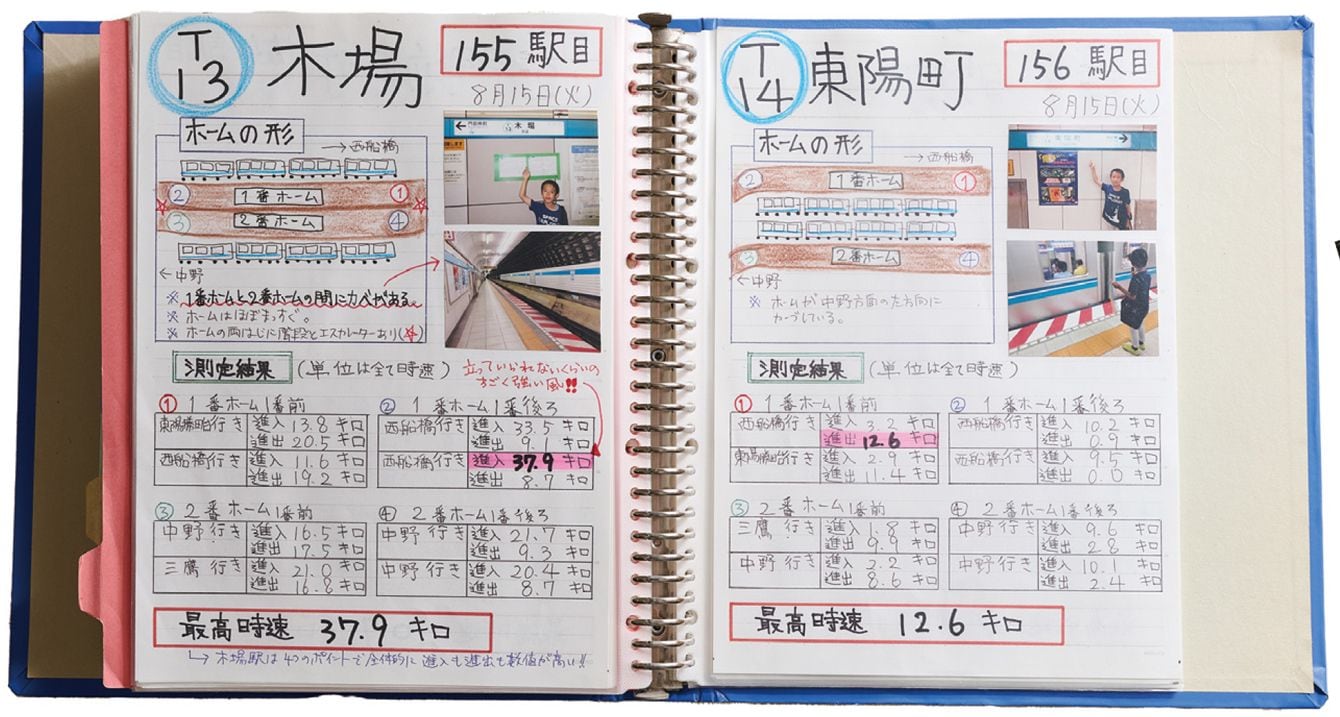 T
13
木場
155駅目
8月15日(火)
ホームの形
→西船橋
② 1番ホーム ①
③ 2番ホーム ④
←中野
※ 1番ホームと2番ホームの間にカベがある
※ ホームはほぼまっすぐ。
※ ホームの両はじに階段とエスカレーターあり(☆)
木場
測定結果 (単位は全て時速)
立っていられないくらいの
すごく強い風!!
① 1番ホーム1番前
東葉勝田台行き 進入 13.8 キロ
進出 20.5
西船橋行き 進入 11.6 キロ
進出 19.2
② 1番ホーム1番後ろ
西船橋行き 進入 33.5 キロ
進出 9.1
西船橋行き 進入 37.9 キロ
進出 8.7
③ 2番ホーム1番前
中野行き 進入 16.5 キロ
進出 17.5
三鷹行き 進入 21.0 キロ
進出 16.8
④ 2番ホーム1番後ろ
中野行き 進入 21.7 キロ
進出 9.3
中野行き 進入 20.4 キロ
進出 8.7
最高時速 37.9 キロ
↳ 木場駅は4つのポイントで全体的に進入も進出も数値が高い!!
T
14
東陽町
156駅目
8月15日(火)
ホームの形
→西船橋
② 1番ホーム ①
③ 2番ホーム ④
←中野
※ ホームが中野方面の左方向に
カーブしている。
測定結果 (単位は全て時速)
① 1番ホーム1番前
西船橋行き 進入 3.2 キロ
進出 12.6 キロ
東葉勝田台行き 進入 2.9 キロ
進出 11.4
② 1番ホーム1番後ろ
西船橋行き 進入 10.2 キロ
進出 0.9
西船橋行き 進入 9.5 キロ
進出 0.0
③ 2番ホーム1番前
三鷹行き 進入 1.8 キロ
進出 9.9
中野行き 進入 2.2 キロ
進出 8.6
④ 2番ホーム1番後ろ
中野行き 進入 9.6 キロ
進出 2.8
中野行き 進入 10.1 キロ
進出 2.4
最高時速 12.6 キロ